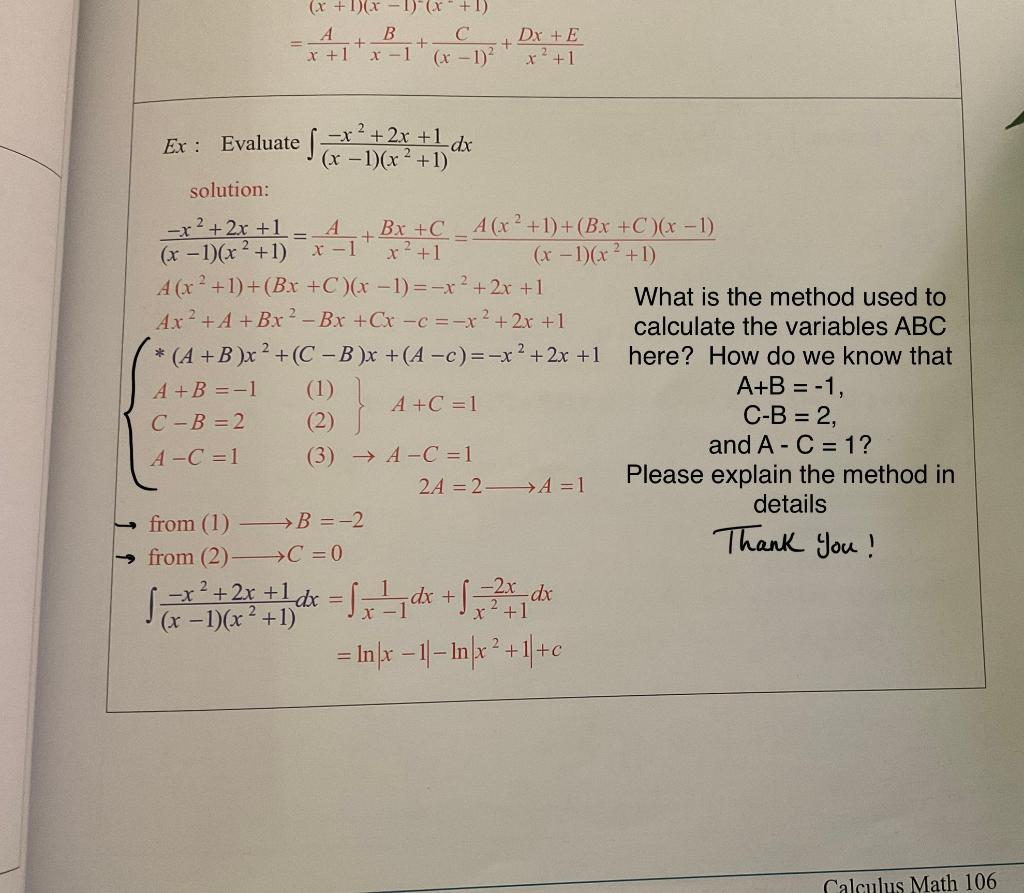 (x + 1)(x − 1)²(x² + 1)
= A/(x + 1) + B/(x − 1) + C/(x − 1)² + (Dx + E)/(x² + 1)
Ex : Evaluate ∫ (−x² + 2x + 1)/((x − 1)(x² + 1)) dx
solution:
(−x² + 2x + 1)/((x − 1)(x² + 1)) = A/(x − 1) + (Bx + C)/(x² + 1) = (A(x² + 1) + (Bx + C)(x − 1))/((x − 1)(x² + 1))
A(x² + 1) + (Bx + C)(x − 1) = −x² + 2x + 1
Ax² + A + Bx² − Bx + Cx − c = −x² + 2x + 1
* (A + B)x² + (C − B)x + (A − c) = −x² + 2x + 1
A + B = −1 (1)
C − B = 2 (2)
A + C = 1
A − C = 1 (3) → A − C = 1
2A = 2 → A = 1
→ from (1) → B = −2
→ from (2) → C = 0
∫ (−x² + 2x + 1)/((x − 1)(x² + 1)) dx = ∫ 1/(x − 1) dx + ∫ −2x/(x² + 1) dx
= ln|x − 1| − ln|x² + 1| + c
What is the method used to
calculate the variables ABC
here? How do we know that
A+B = -1,
C-B = 2,
and A - C = 1?
Please explain the method in
details
Thank you !
Calculus Math 106